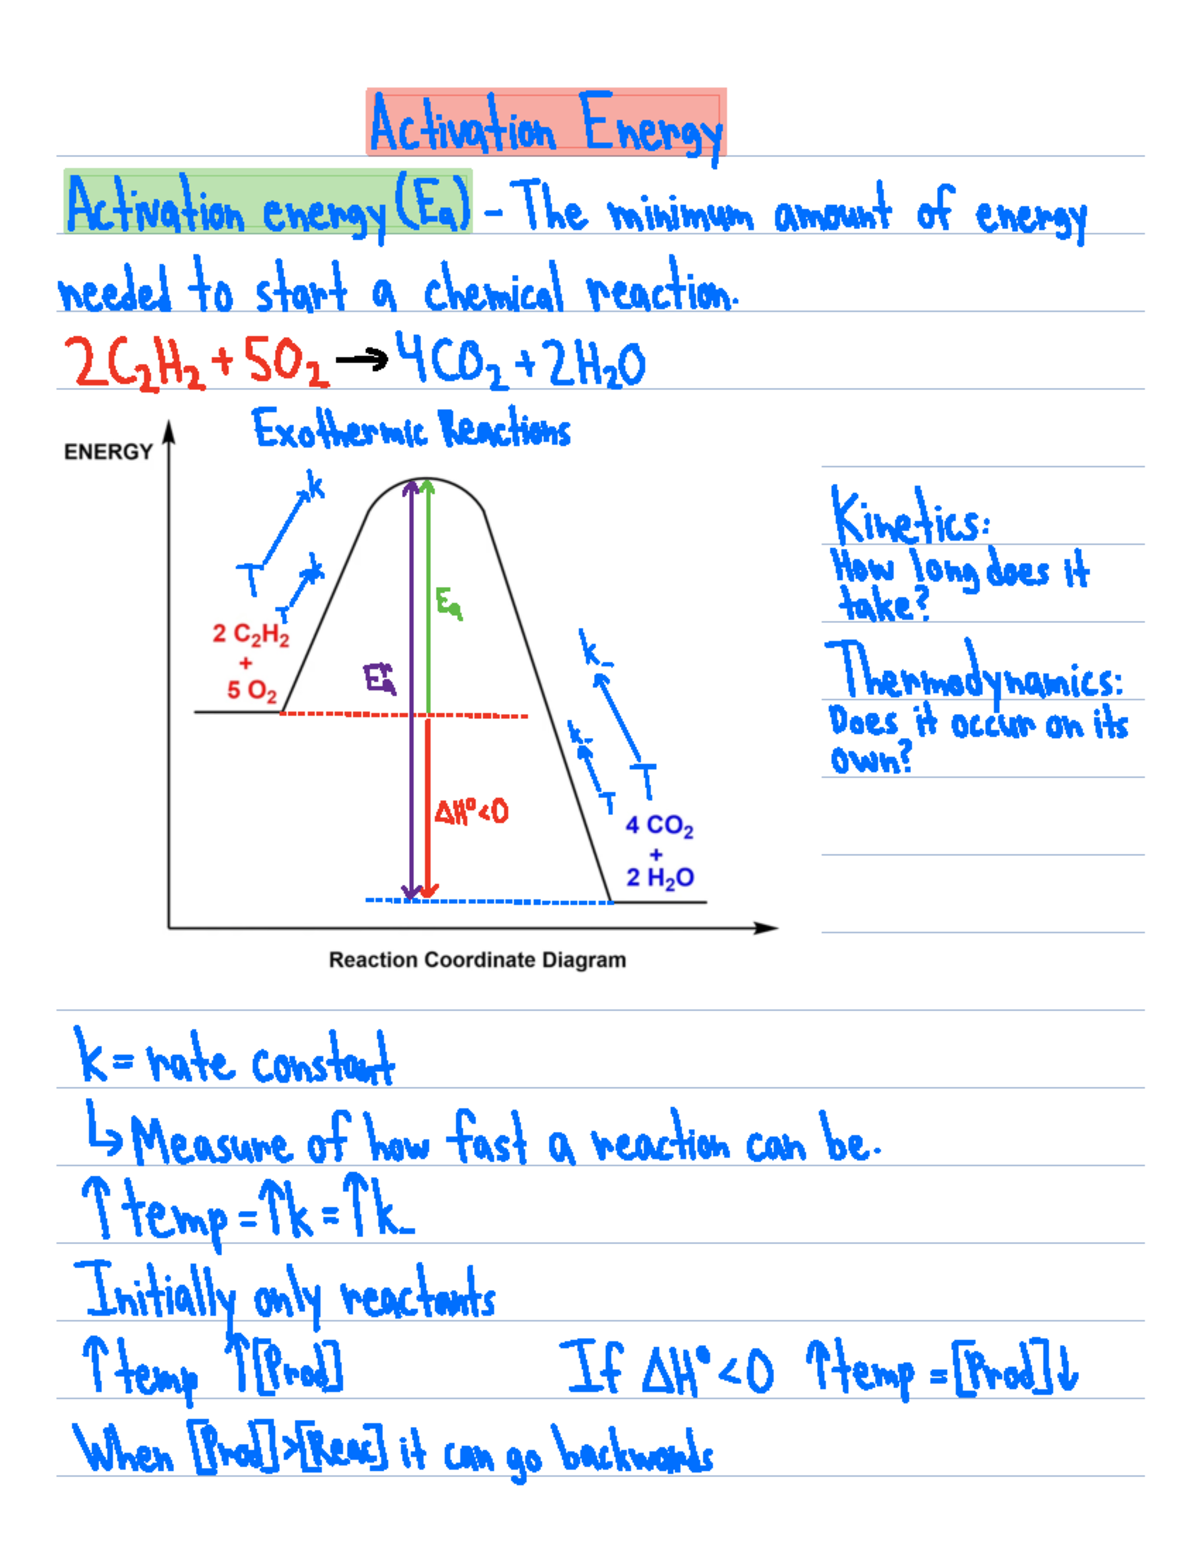 Activation Energy
Activation energy (Ea) - The minimum amount of energy
needed to start a chemical reaction.
2C₂H₂ + 5O₂ → 4CO₂ + 2H₂O
Exothermic Reactions
ENERGY
k
T
k
T
2 C₂H₂
+
5 O₂
Ea
ΔH°<0
k₋
T
k₋
T
4 CO₂
+
2 H₂O
Reaction Coordinate Diagram
Kinetics:
How long does it
take?
Thermodynamics:
Does it occur on its
own?
k = rate constant
↳ Measure of how fast a reaction can be.
↑ temp = ↑k = ↑k₋
Initially only reactants
↑ temp ↑[Prod]
If ΔH° < 0 ↑temp = [Prod]↓
When [Prod]>[Reac] it can go backwards